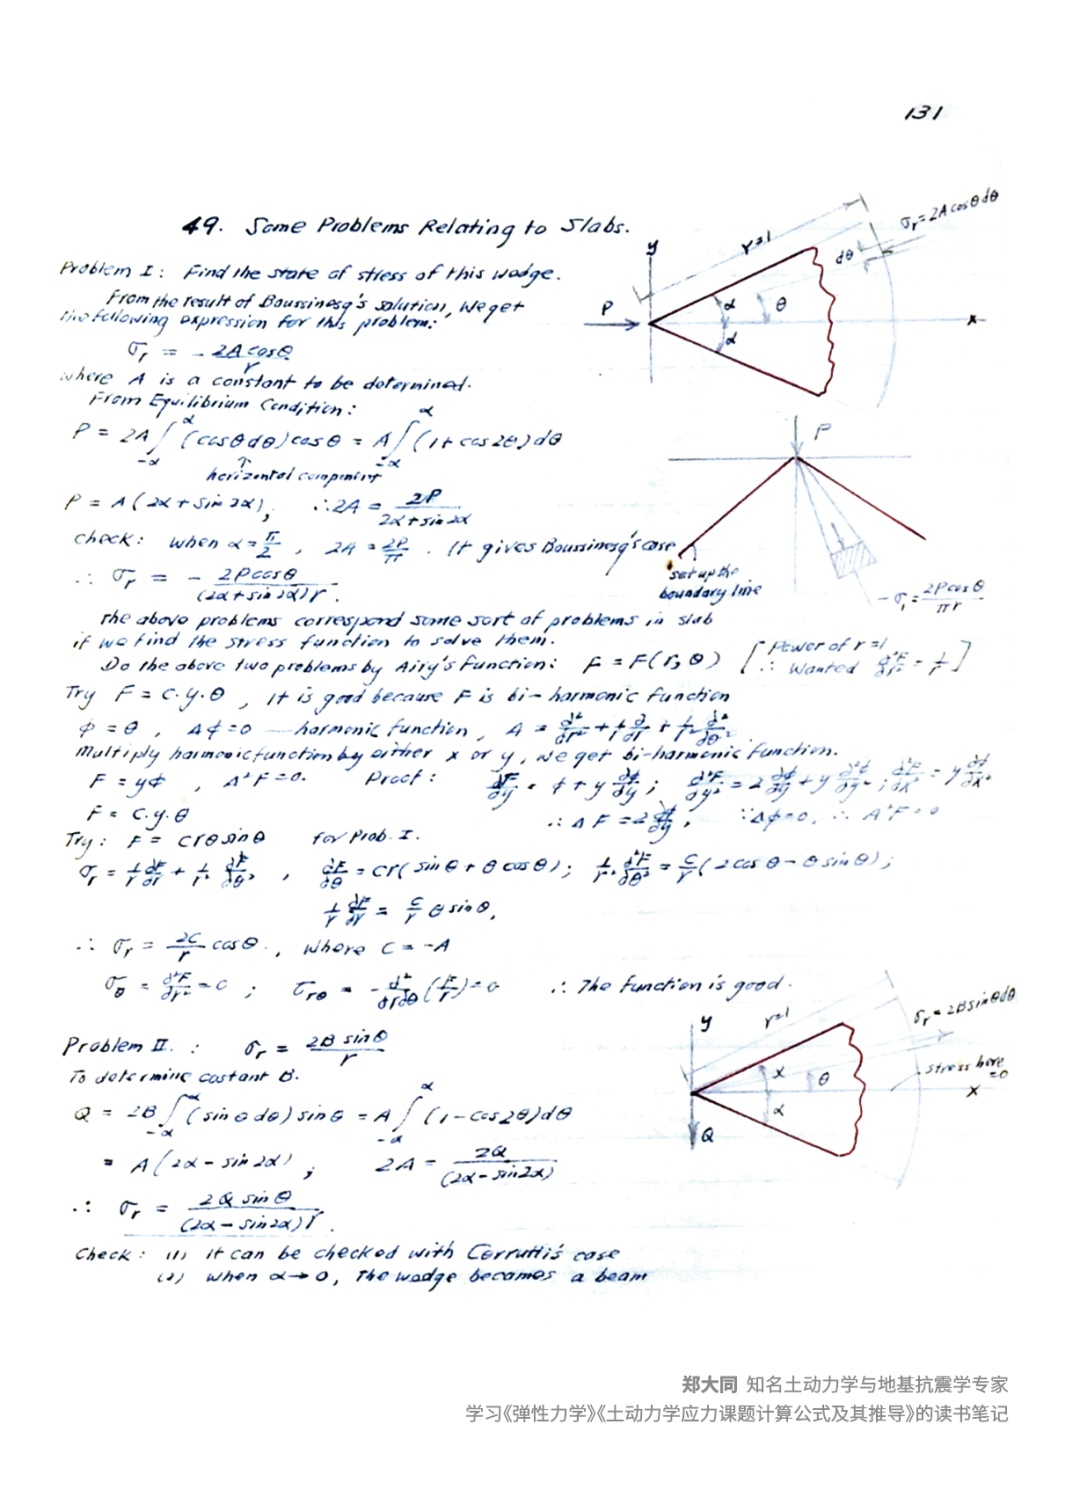 131
49. Some Problems Relating to Slabs.
Problem I: Find the state of stress of this wedge.
From the result of Boussinesq's solution, we get
the following expression for this problem:
σr = - 2A cosθ / r
where A is a constant to be determined.
From Equilibrium Condition:
P = 2A ∫_{-α}^{α} (cosθdθ) cosθ = A ∫_{-α}^{α} (1+cos2θ)dθ
horizontal component
P = A(2α + sin2α), ∴ 2A = 2P / (2α+sin2α)
check: when α = π/2, 2A = 2P/π. It gives Boussinesq's case
∴ σr = - 2P cosθ / (2α+sin2α)r.
The above problems correspond some sort of problems in slab
if we find the stress function to solve them.
Do the above two problems by Airy's Function: F = F(r, θ) [Power of r = 1 ∴ Wanted ∂²F/∂r² = 1/r]
Try F = c·y·θ, It is good because F is bi-harmonic function
φ = θ, Δφ = 0 — harmonic function, Δ = ∂²/∂r² + 1/r ∂/∂r + 1/r² ∂²/∂θ²
Multiply harmonic function by either x or y, we get bi-harmonic function.
F = yφ, Δ²F = 0. Proof: ∂F/∂y = φ + y ∂φ/∂y; ∂²F/∂y² = 2 ∂φ/∂y + y ∂²φ/∂y²; ∂²F/∂x² = y ∂²φ/∂x²
F = c.y.θ ∴ ΔF = 2 ∂φ/∂y, ∵ Δφ=0, ∴ Δ²F = 0
Try: F = crθsinθ for Prob. I.
σr = 1/r ∂F/∂r + 1/r² ∂²F/∂θ², ∂F/∂θ = cr(sinθ + θcosθ); 1/r² ∂²F/∂θ² = c/r (2cosθ - θsinθ);
1/r ∂F/∂r = c/r θsinθ,
∴ σr = 2c/r cosθ., where C = -A
σθ = ∂²F/∂r² = 0; τrθ = - ∂²/∂r∂θ (F/r) = 0 ∴ The function is good.
Problem II. : σr = 2B sinθ / r
To determine costant B.
Q = 2B ∫_{-α}^{α} (sinθdθ) sinθ = A ∫_{-α}^{α} (1-cos2θ)dθ
= A(2α - sin2α), 2A = 2Q / (2α-sin2α)
∴ σr = 2Q sinθ / (2α-sin2α)r.
Check: (1) it can be checked with Cerrutti's case
(2) when α→0, The wedge becomes a beam
y
P
r=1
α
α
θ
dθ
σr = 2A cosθdθ
x
P
set up the
boundary line
-σr = 2P cosθ / πr
y
r=1
α
α
θ
σr = 2B sinθdθ
stress here
=0
x
Q
郑大同 知名土动力学与地基抗震学专家
学习《弹性力学》《土动力学应力课题计算公式及其推导》的读书笔记